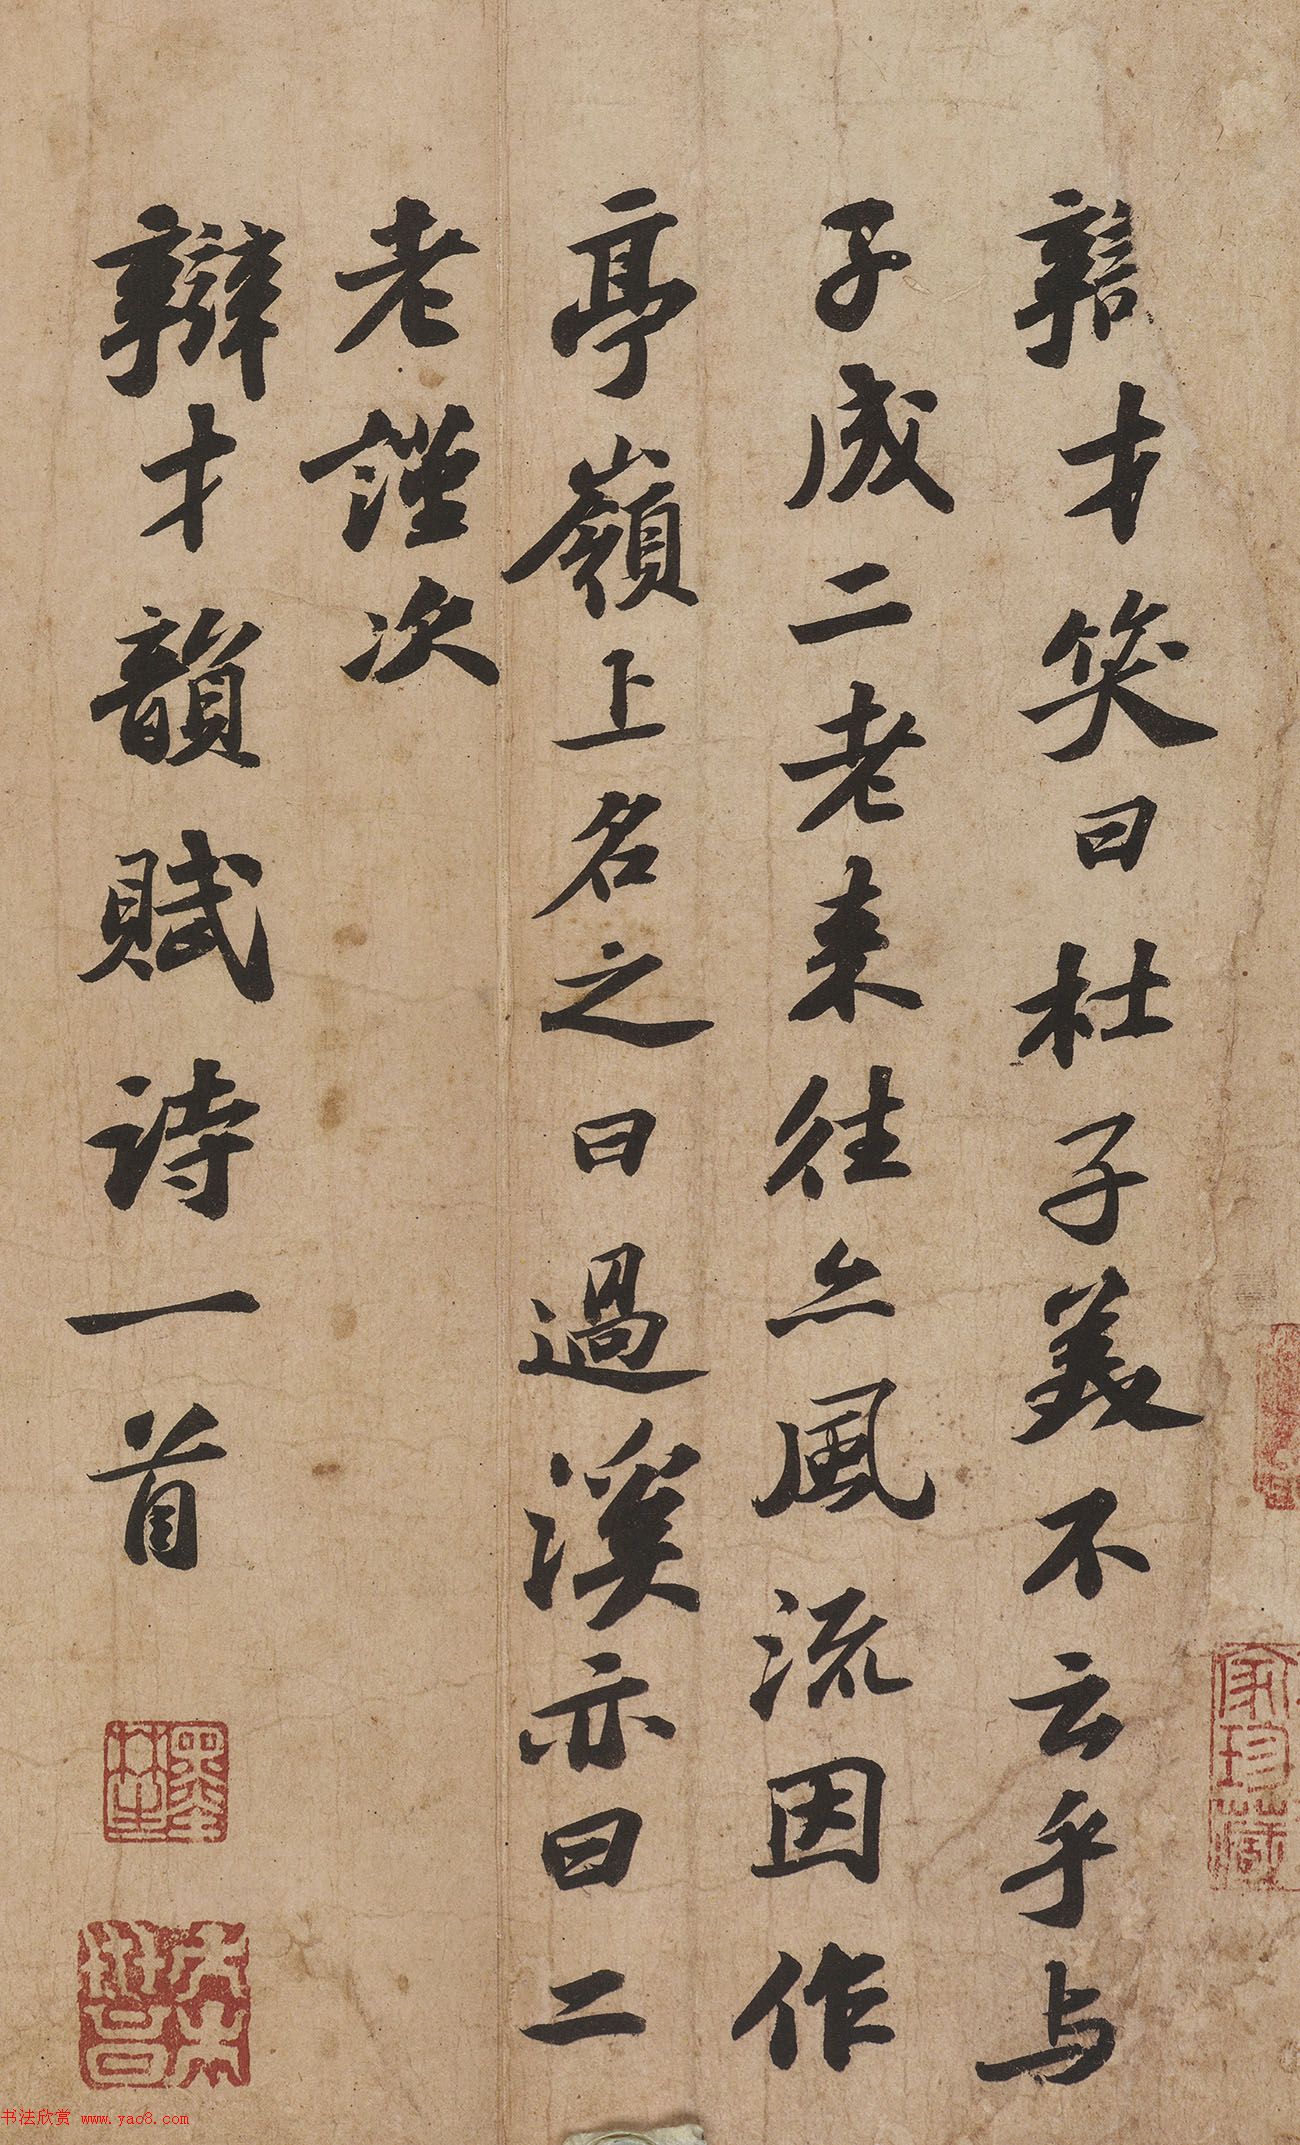 辯才笑曰杜子美不云乎与
子成二老来往亦風流因作
亭嶺上名之曰過溪亦曰二
老謹次
辯才韻賦诗一首
家珍藏
书法欣赏 www.yac8.com